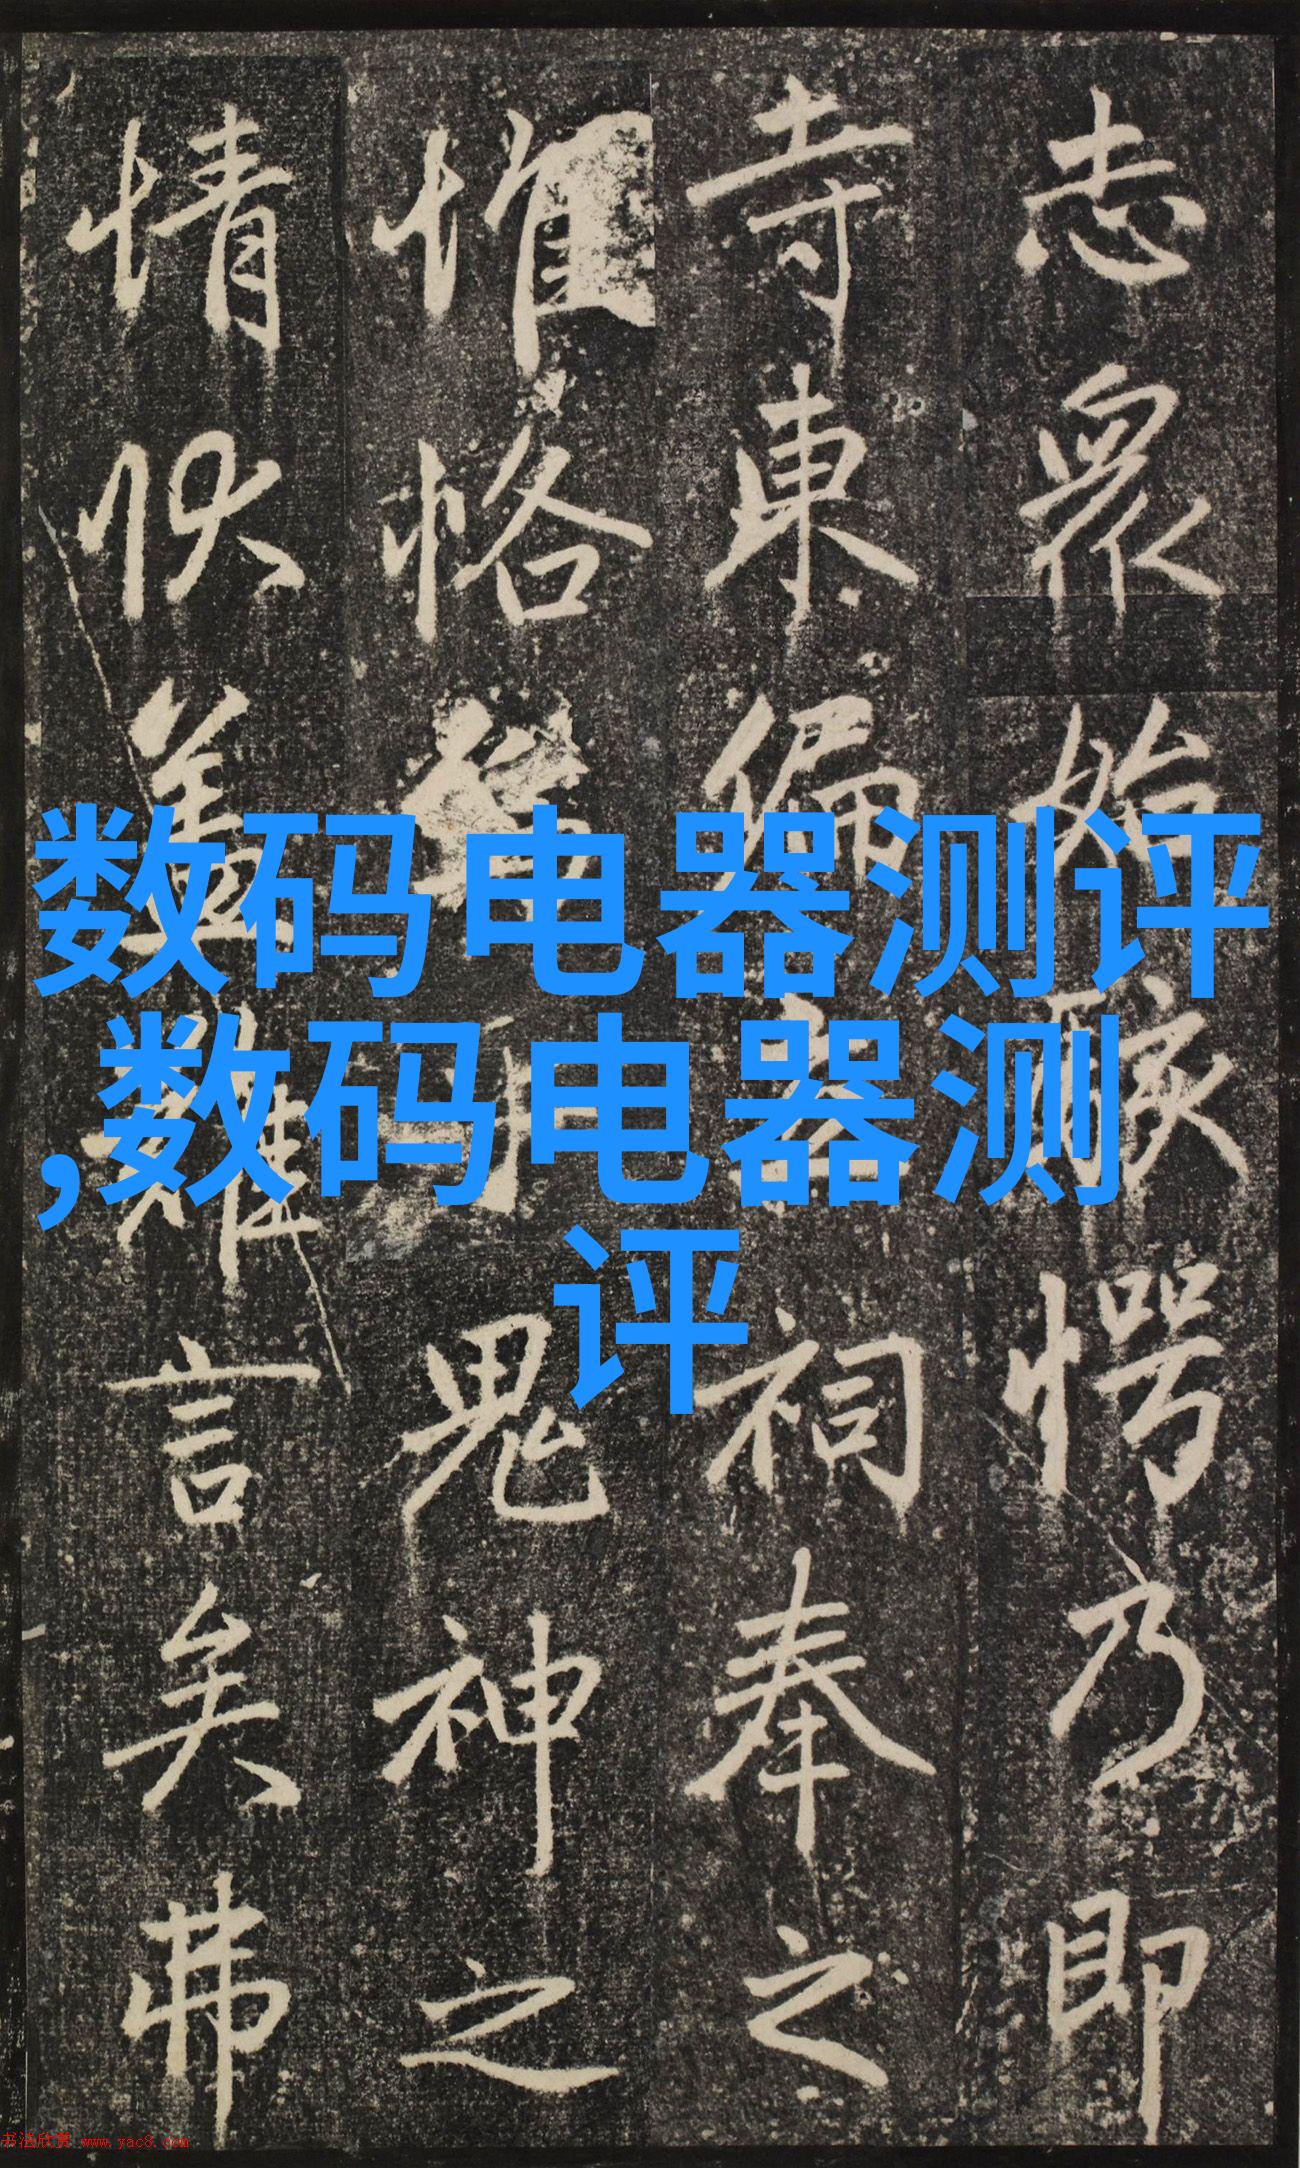 志眾始駭愕乃即
寺東偏祠奉之
惟恪鬼神之
情狀蓋難言矣弗
数码电器测评
,数码电器测
评
书法欣赏 www.yac8.com